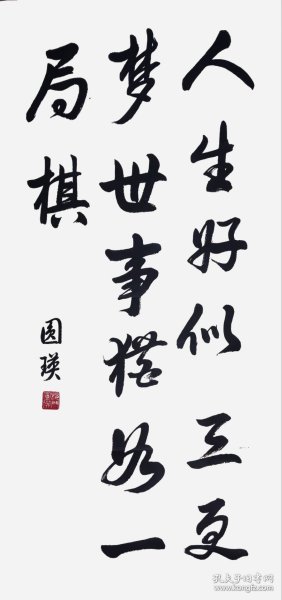 人生好似三更
梦世事犹如一
局棋
圆瑛
孔夫子旧书网
www.kongfz.com